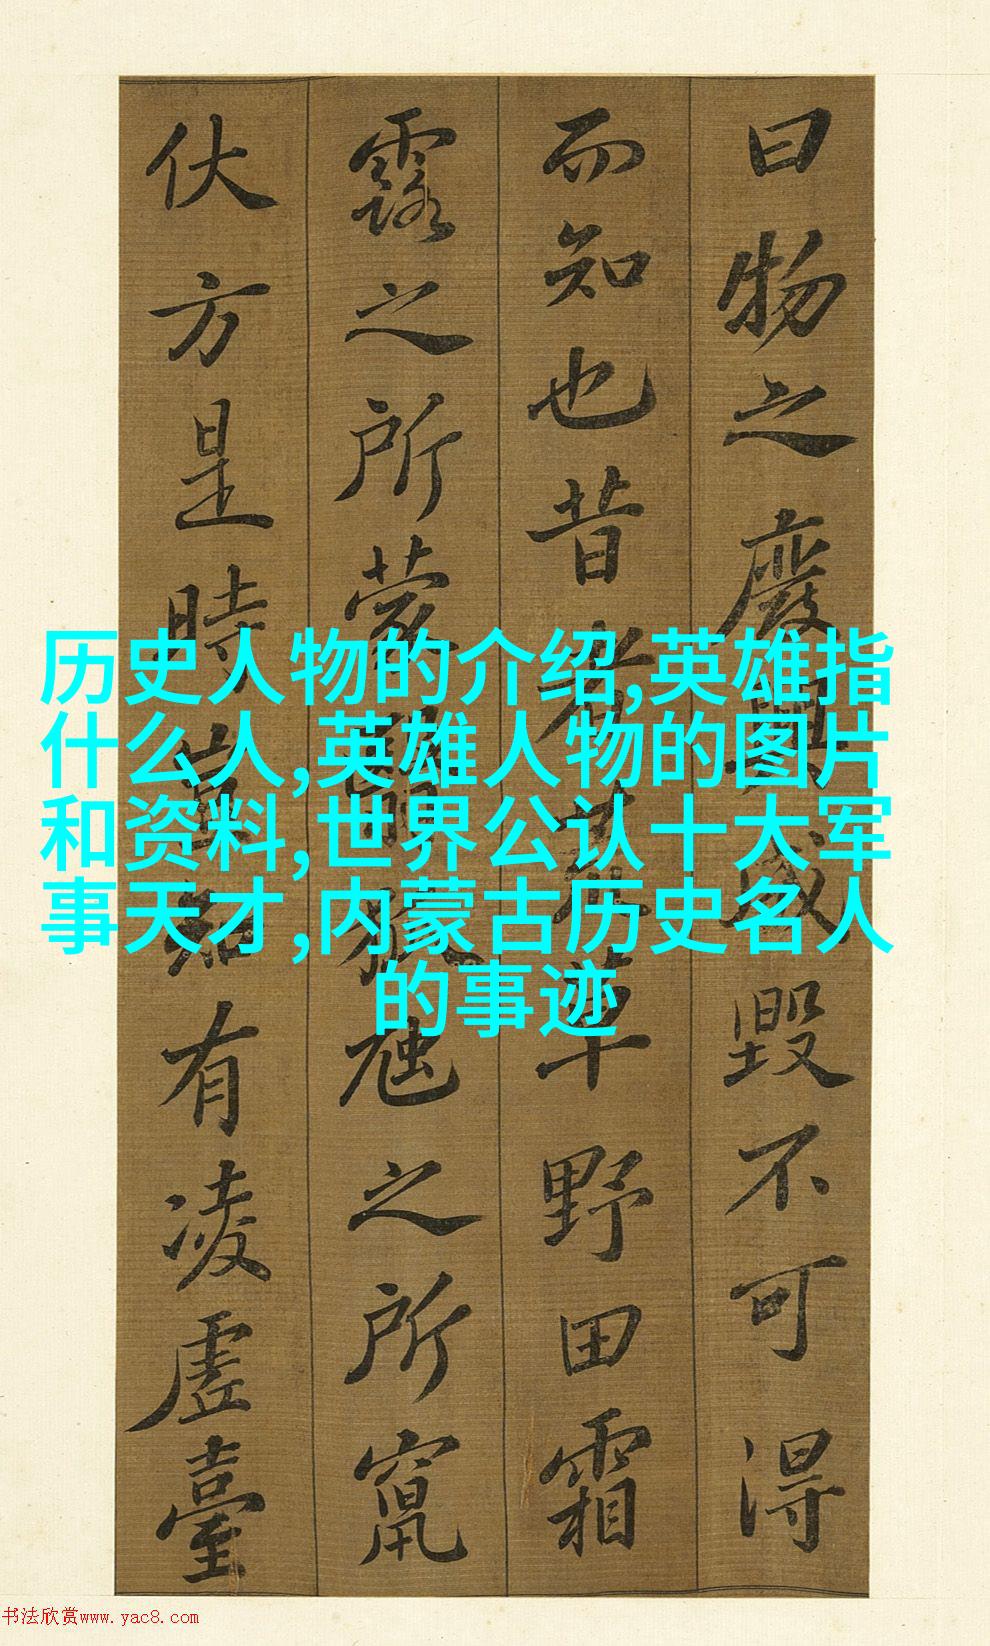 曰物之廢興成毀不可得
而知也昔者荒草野田霜
露之所蒙翳狐虺之所竄
伏方是時豈知有凌虛臺
历史人物的介绍,英雄指
什么人,英雄人物的图片
和资料,世界公认十大军
事天才,内蒙古历史名人
的事迹
书法欣赏www.yac8.com